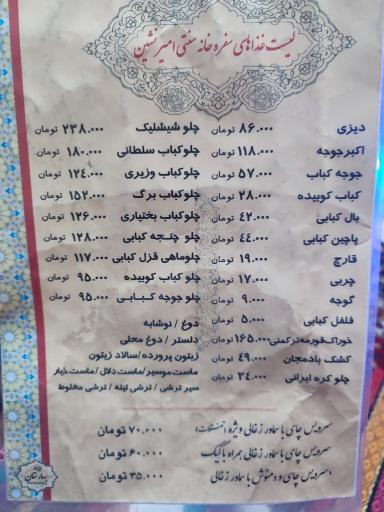 لیست غذاهای سفره خانه سنتی امیرنشین
دیزی ۸۶.۰۰۰ تومان
اکبرجوجه ۱۱۸.۰۰۰ تومان
جوجه کباب ۵۷.۰۰۰ تومان
کباب کوبیده ۲۸.۰۰۰ تومان
بال کبابی ۴۲.۰۰۰ تومان
پاچین کبابی ۴۴.۰۰۰ تومان
قارچ ۱۹.۰۰۰ تومان
چربی ۱۷.۰۰۰ تومان
گوجه ۹.۰۰۰ تومان
فلفل کبابی ۵.۰۰۰ تومان
خوراک قورمه ترکمنی ۱۶۵.۰۰۰ تومان
کشک بادمجان ۴۹.۰۰۰ تومان
چلو کره ایرانی ۳۴.۰۰۰ تومان
چلو شیشلیک ۲۳۸.۰۰۰ تومان
چلوکباب سلطانی ۱۸۰.۰۰۰ تومان
چلوکباب وزیری ۱۲۴.۰۰۰ تومان
چلوکباب برگ ۱۵۲.۰۰۰ تومان
چلوکباب بختیاری ۱۲۶.۰۰۰ تومان
چلو چنجه کبابی ۱۲۸.۰۰۰ تومان
چلوماهی قزل کبابی ۱۱۷.۰۰۰ تومان
چلو کباب کوبیده ۹۵.۰۰۰ تومان
چلو جوجه کبابی ۹۵.۰۰۰ تومان
دوغ / نوشابه
دلستر / دوغ محلی
زیتون پرورده / سالاد زیتون
ماست موسیر / ماست دلال / ماست خیار
سیر ترشی / ترشی لیته / ترشی مخلوط
سرویس چای با سماور زغالی ویژه (تنقلات) ۷۰.۰۰۰ تومان
سرویس چای با سماور زغالی همراه با کیک ۶۰.۰۰۰ تومان
سرویس چای و دمنوش با سماور زغالی ۳۵.۰۰۰ تومان
بهارستان